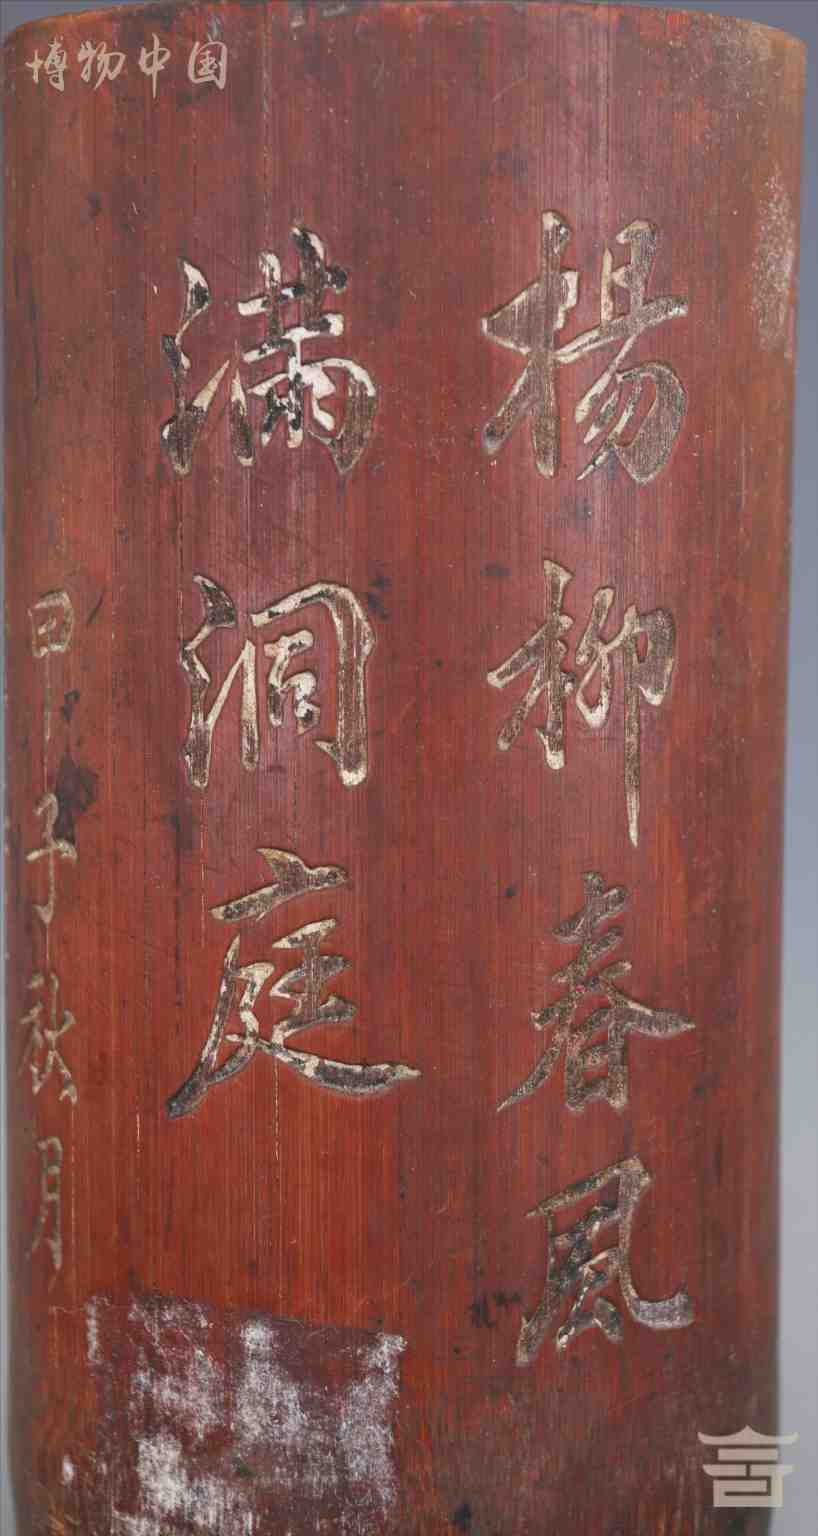 博物中国
楊柳春風
滿洞庭
甲子秋月